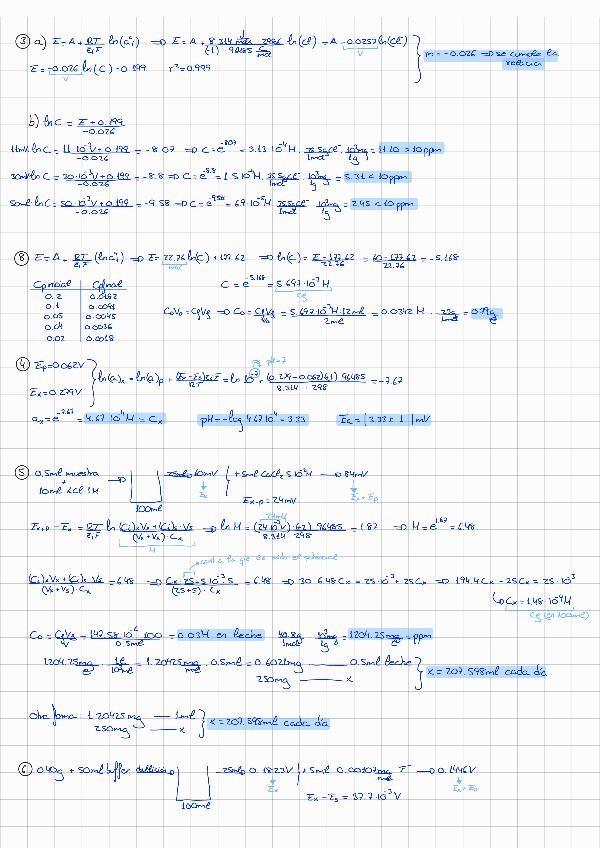 ③ a) E = A + RT/ziF ln(ai) ⇒ E = A + 8.314 · 298/((-1) · 96485 C/mol) ln(Cl⁻) = A - 0.0257 ln(Cl⁻)
E = -0.026 ln(C) - 0.199 r² = 0.999
m = -0.026 ⇒ se cumple la
b) ln C = E + 0.199/-0.026
ln C = 11·10⁻³V + 0.199/-0.026 = -8.07 ⇒ C = e^-8.07 = 3.13·10⁻⁴ M · 35.5g Cl⁻/1mol · 10³mg/1g = 11.10 > 10ppm
ln C = 30·10⁻³V + 0.199/-0.026 = -8.8 ⇒ C = e^-8.8 = 1.5·10⁻⁴M · 35.5g Cl⁻/1mol · 10³mg/1g = 5.31 < 10ppm
ln C = 50·10⁻³V + 0.199/-0.026 = -9.58 ⇒ C = e^-9.58 = 6.9·10⁻⁵M · 35.5g Cl⁻/1mol · 10³mg/1g = 2.45 < 10ppm
⑧ E = A - RT/ziF ln(ai) ⇒ E = 22.76 ln(C) + 177.62 ⇒ ln(C) = E - 177.62/22.76 = 60 - 177.62/22.76 = -5.168
mV
Cinicial Cfinal
0.2 0.0182
0.1 0.0091
0.05 0.0045
0.04 0.0036
0.02 0.0018
C = e^-5.168 = 5.697·10⁻³ M
Cf
C₀V₀ = CfVf ⇒ C₀ = CfVf/V₀ = 5.697·10⁻³M · 12ml/2ml = 0.0342 M · 23g/1mol = 0.79 g/l
④ Ep = 0.062V
Ex = 0.279V
ln(a)x = ln(a)p + (Ex - Es)ziF/RT = ln 10⁻⁷ + (0.279 - 0.062)(1) 96485/8.314 · 298 = -7.67
ax = e^-7.67 = 4.67·10⁻⁴ M = Cx pH = -log 4.67·10⁻⁴ = 3.33 Ec = |3.33 ± 1| mV
⑤ 0.5ml muestra
+
10ml KCl 1M
100ml
25ml → 60mV + 5ml CaCl₂ 5·10⁻³M → 84mV
Ex
Ex+Ep
Ex+p = 24mV
24mV
Ex+p - Ex = RT/ziF ln (Ci)xVx + (Ci)s·Vs/(Vx + Vs) · Cx ⇒ ln M = (24·10⁻³V)·(2) 96485/8.314 · 298 = 1.87 ⇒ M = e^1.87 = 6.48
M
(Ci)xVx + (Ci)s Vs/(Vx + Vs) · Cx = 6.48 ⇒ Cx · 25 + 5·10⁻³·5/(25+5) · Cx = 6.48 ⇒ 30 · 6.48 Cx = 25·10⁻³ + 25Cx ⇒ 194.4Cx - 25Cx = 25·10⁻³
Cx = 1.48·10⁻⁴M
Cf (en 100ml)
C₀ = CfVf/V = 147.58·10⁻⁶ · 100/0.5ml = 0.03M en leche 40.8g/1mol 10³mg/1g = 1204.25mg/l = ppm
1204.25mg/l · 1l/10³ml = 1.20425mg/ml · 0.5ml = 0.6021mg — 0.5ml leche
250mg — x
x = 207.598ml cada día
Otra forma: 1.20425mg — 1ml
250mg — x
x = 207.598ml cada día
⑥ 0.40g + 50ml buffer
100ml
25ml → 0.1823V + 5ml 0.00107mg/ml F⁻ → 0.1446V
Ex
Ex+Ep
Ex - Es = 37.7·10⁻³V